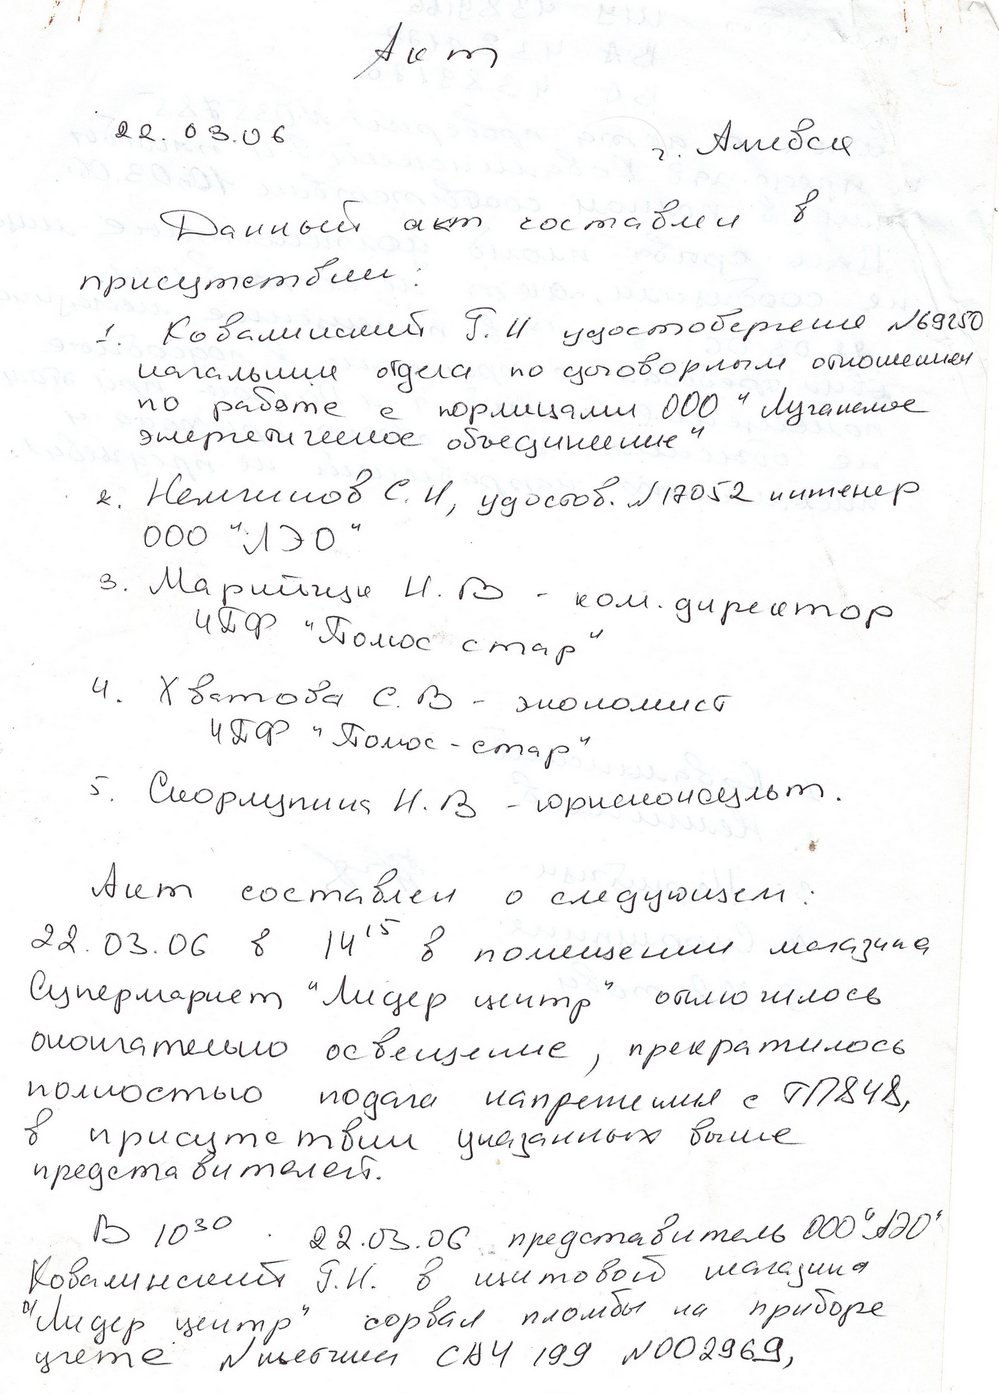 Акт
22.03.06 г. Алчевск
Данный акт составлен в
присутствии:
1. Ковалинский Г.И удостоверение №69250
начальник отдела по договорным отношениям
по работе с юрлицами ООО "Луганское
энергетическое объединение"
2. Немчинов С.И, удостов. №17052 инженер
ООО "ЛЭО"
3. Марийчук Н.В - ком. директор
ЧПФ "Полюс стар"
4. Хватова С.В - экономист
ЧПФ "Полюс-стар"
5. Скорлупина Н.В - юрисконсульт.
Акт составлен о следующем:
22.03.06 в 14 15 в помещении магазина
Супермаркет "Лидер центр" отключилось
окончательно освещение, прекратилось
полностью подача напряжения с ТП848,
в присутствии указанных выше
представителей.
В 10 30 . 22.03.06 представитель ООО "ЛЭО"
Ковалинский Г.И. в щитовой магазина
"Лидер центр" сорвал пломбы на приборе
учете №счетчика САЧ 199 №002969,